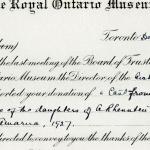 e Royal Ontario Museum
Toronto
the last meeting of the Board of Trust
tario Museum the Director of the
ported your donation of a Cast from
of the daughters of Akhenaten
Amarna, 1927.
directed to convey to you the thanks of the